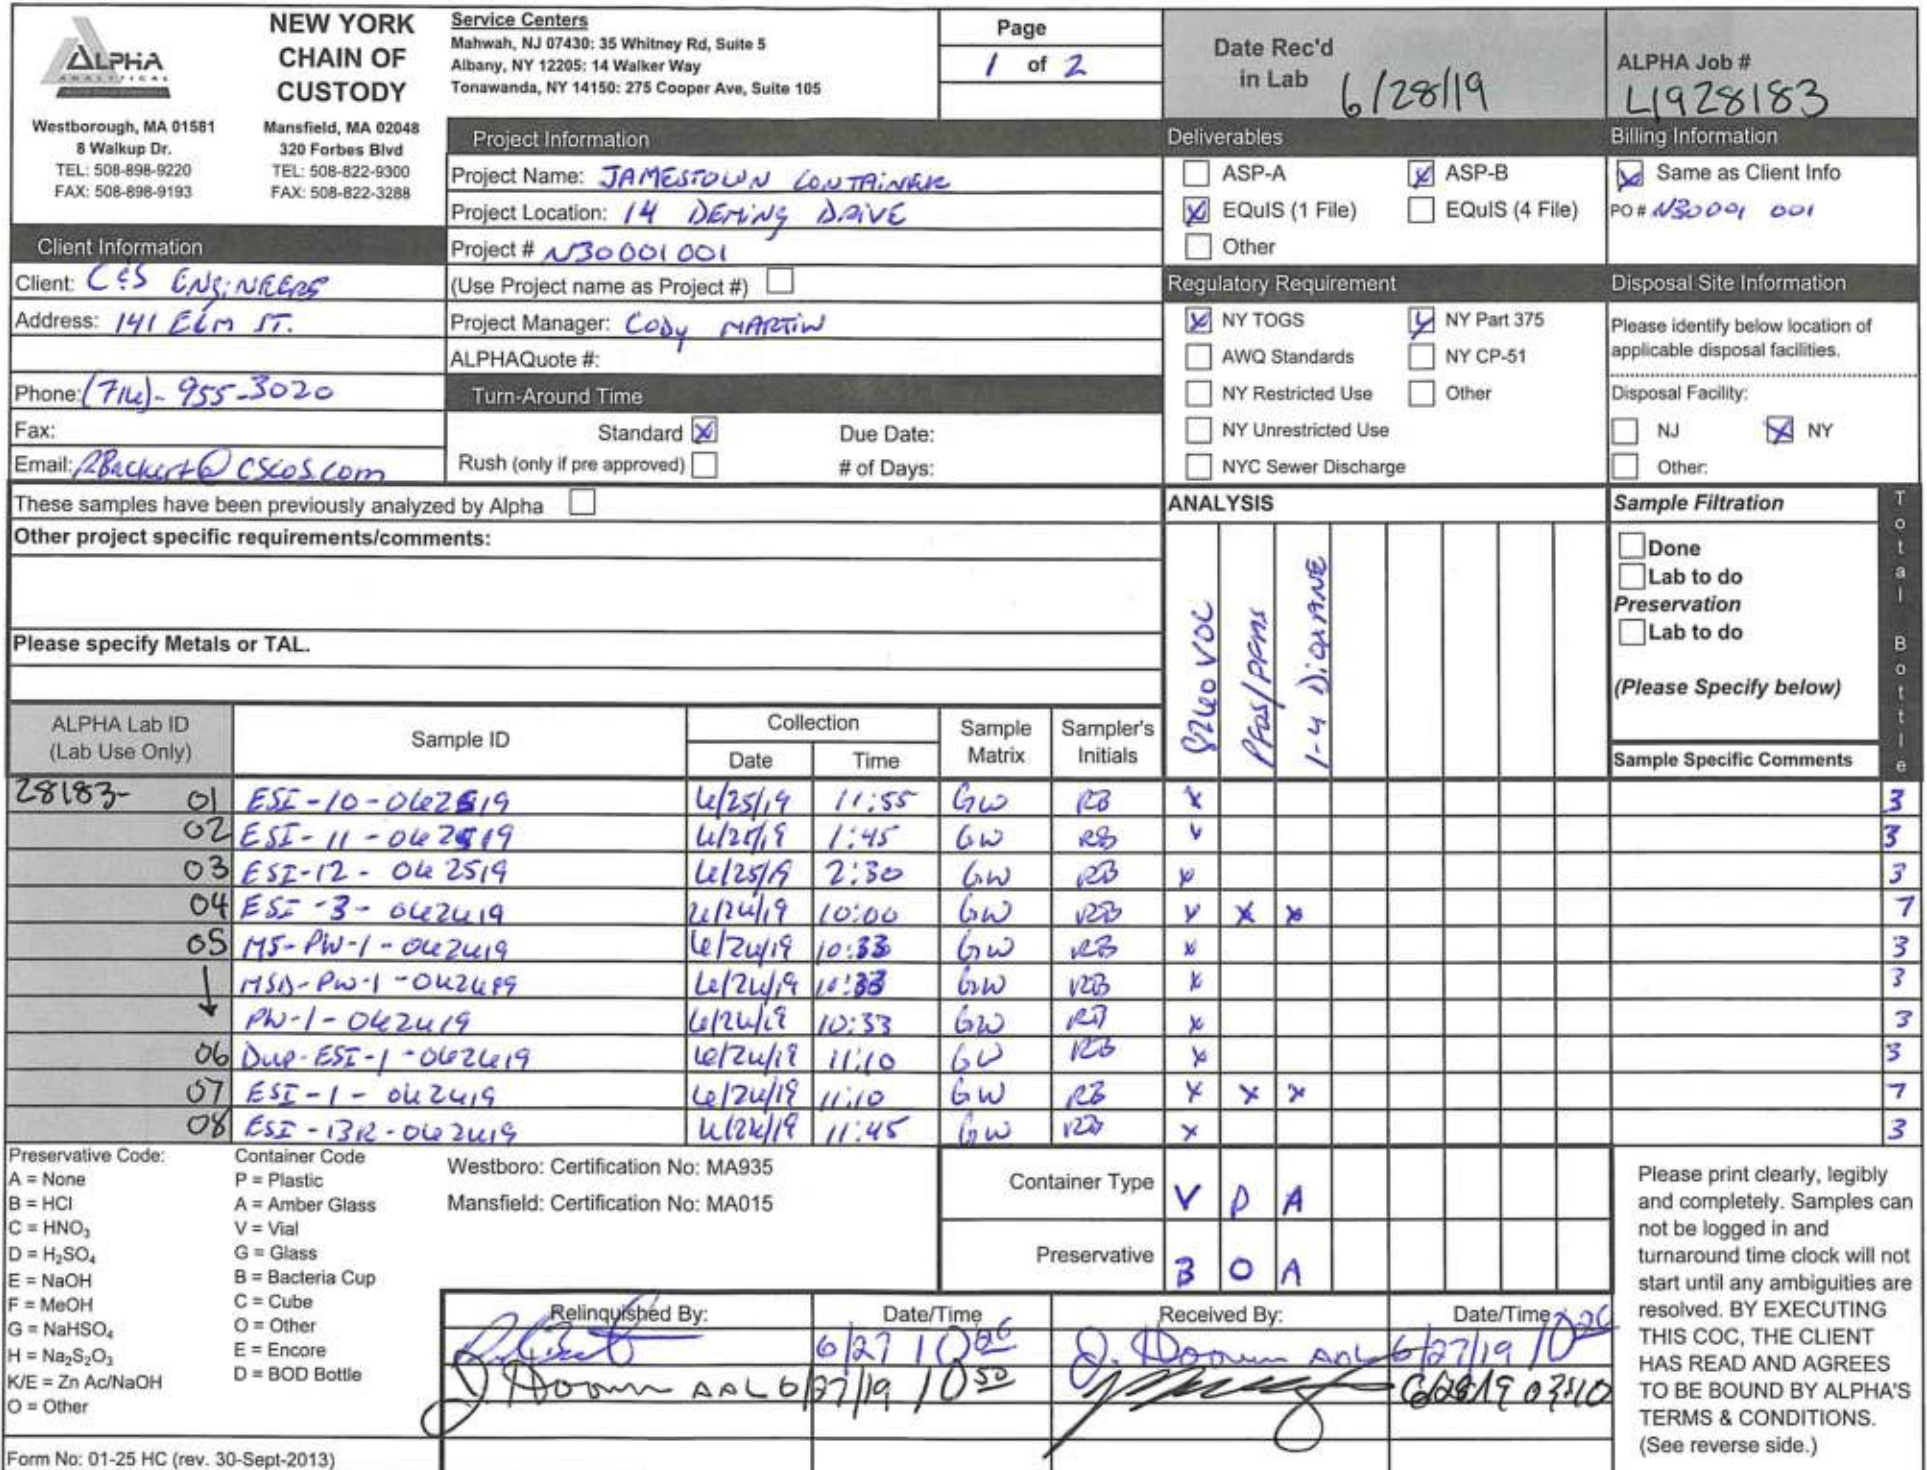 ALPHA
ANALYTICAL
Westborough, MA 01581
8 Walkup Dr.
TEL: 508-898-9220
FAX: 508-898-9193
NEW YORK
CHAIN OF
CUSTODY
Mansfield, MA 02048
320 Forbes Blvd
TEL: 508-822-9300
FAX: 508-822-3288
Service Centers
Mahwah, NJ 07430: 35 Whitney Rd, Suite 5
Albany, NY 12205: 14 Walker Way
Tonawanda, NY 14150: 275 Cooper Ave, Suite 105
Page
1 of 2
Date Rec'd
in Lab 6/28/19
ALPHA Job #
L1928183
Client Information
Client: C&S ENGINEERS
Address: 141 ELM ST.
Phone: (716)-955-3020
Fax:
Email: RBackert@cscos.com
Project Information
Project Name: JAMESTOWN CONTAINER
Project Location: 14 DEMING DRIVE
Project # N30001001
(Use Project name as Project #)
Project Manager: CODY MARTIN
ALPHAQuote #:
Turn-Around Time
Standard X Due Date:
Rush (only if pre approved) # of Days:
Deliverables
ASP-A X ASP-B
X EQuIS (1 File) EQuIS (4 File)
Other
Regulatory Requirement
X NY TOGS X NY Part 375
AWQ Standards NY CP-51
NY Restricted Use Other
NY Unrestricted Use
NYC Sewer Discharge
Billing Information
X Same as Client Info
PO # N30001 001
Disposal Site Information
Please identify below location of
applicable disposal facilities.
Disposal Facility:
NJ X NY
Other:
These samples have been previously analyzed by Alpha
Other project specific requirements/comments:
Please specify Metals or TAL.
ANALYSIS
8260 VOC
PFOS/PFAS
1-4 DIOXANE
Sample Filtration
Done
Lab to do
Preservation
Lab to do
(Please Specify below)
Total Bottle
ALPHA Lab ID
(Lab Use Only)
Sample ID
Collection
Date Time
Sample
Matrix
Sampler's
Initials
Sample Specific Comments
28183- 01 ESI-10-062519 6/25/19 11:55 GW RB X 3
02 ESI-11-062519 6/25/19 1:45 GW RB X 3
03 ESI-12-062519 6/25/19 2:30 GW RB X 3
04 ESI-3-062619 6/26/19 10:00 GW RB X X X 7
05 MS-PW-1-062619 6/26/19 10:33 GW RB X 3
MSD-PW-1-062619 6/26/19 10:33 GW RB X 3
PW-1-062619 6/26/19 10:33 GW RB X 3
06 DUP-ESI-1-062619 6/26/19 11:10 GW RB X 3
07 ESI-1-062619 6/26/19 11:10 GW RB X X X 7
08 ESI-13R-062619 6/26/19 11:45 GW RB X 3
Preservative Code:
A = None
B = HCl
C = HNO3
D = H2SO4
E = NaOH
F = MeOH
G = NaHSO4
H = Na2S2O3
K/E = Zn Ac/NaOH
O = Other
Container Code
P = Plastic
A = Amber Glass
V = Vial
G = Glass
B = Bacteria Cup
C = Cube
O = Other
E = Encore
D = BOD Bottle
Westboro: Certification No: MA935
Mansfield: Certification No: MA015
Container Type V P A
Preservative B O A
Relinquished By: Date/Time Received By: Date/Time
6/27 10 26 AAL 6/27/19 10 26
AAL 6/27/19 10 50 6/28/19
Please print clearly, legibly
and completely. Samples can
not be logged in and
turnaround time clock will not
start until any ambiguities are
resolved. BY EXECUTING
THIS COC, THE CLIENT
HAS READ AND AGREES
TO BE BOUND BY ALPHA'S
TERMS & CONDITIONS.
(See reverse side.)
Form No: 01-25 HC (rev. 30-Sept-2013)